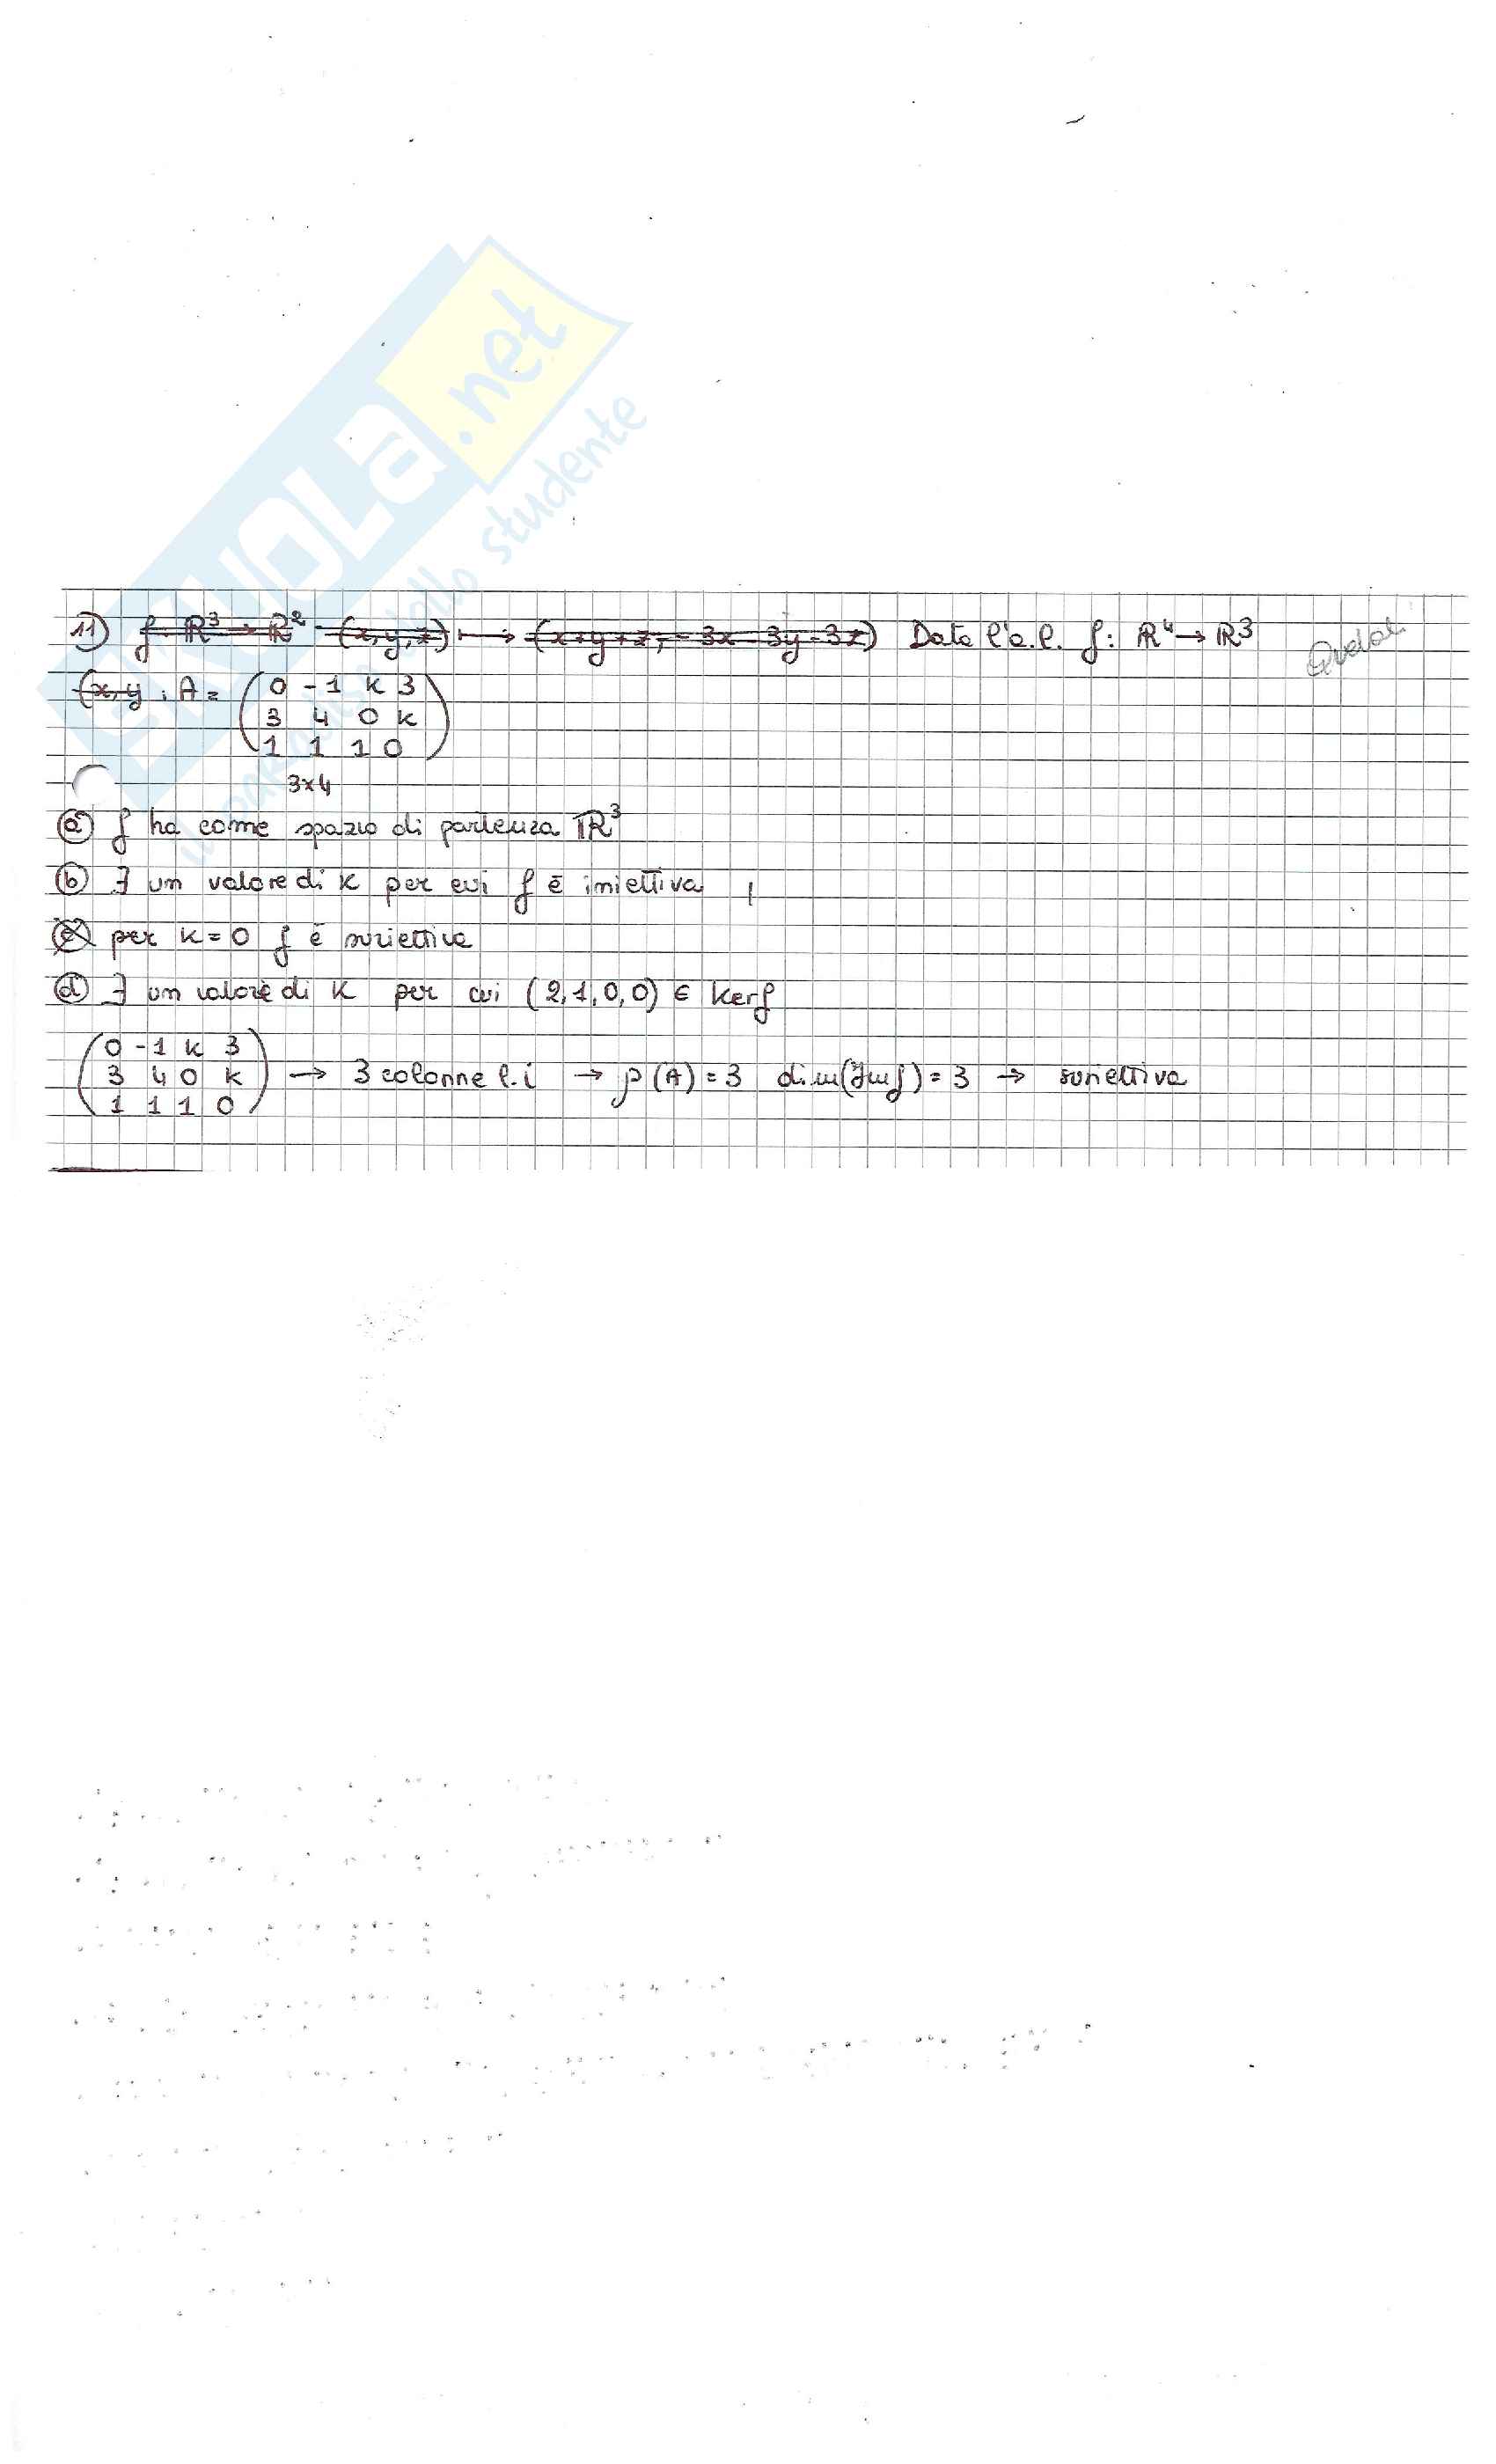 SKUOLa.net
studente
11) f: R³ → R² (x,y,z) ⟼ (x+y+z, -3x-3y-3z) Data l'a.l. f: R⁴ → R³
(x,y ; A = ( 0 -1 k 3
3 4 0 k
1 1 1 0 )
3x4
a) f ha come spazio di partenza R³
b) ∃ un valore di k per cui f è iniettiva
c) per k=0 f è suriettiva
d) ∃ un valore di k per cui (2,1,0,0) ∈ Kerf
( 0 -1 k 3
3 4 0 k → 3 colonne l.i → ρ(A)=3 dim(Imf)=3 → suriettiva
1 1 1 0 )